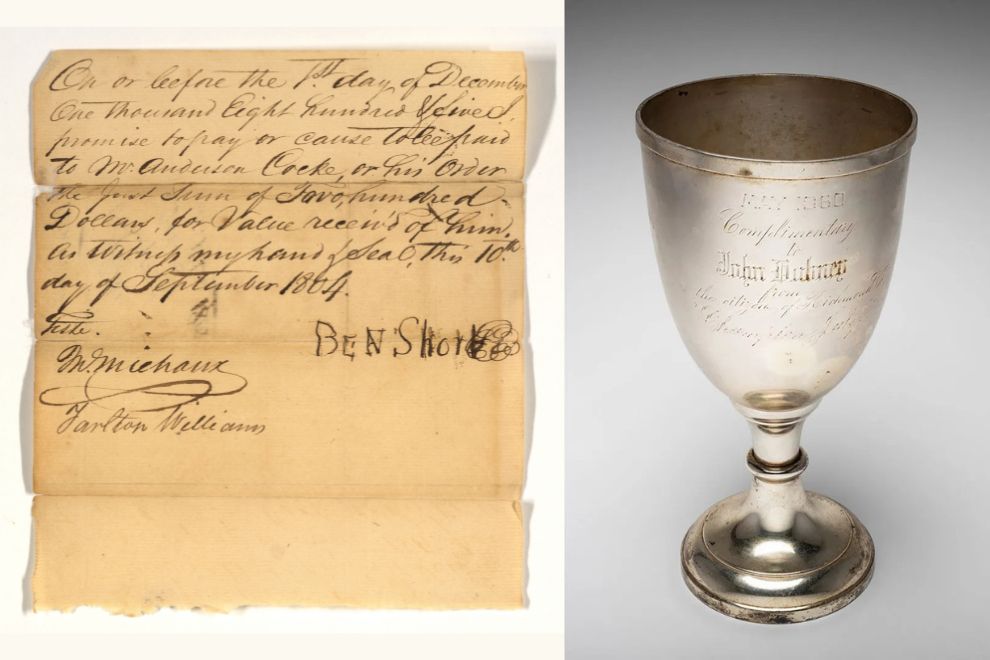 On or before the 1st day of December
One thousand Eight hundred & five I
promise to pay or cause to be paid
to Mr. Anderson Cocke, or his Order
the Just Sum of Two, hundred
Dollars, for Value receiv'd of him.
As Witness my hand & Seal, this 10.th
day of September 1804.
Teste.
BEN Short
M. Michaux
Tarlton Williams
MAY 1860
Complimentary
to
John Dabney
from
the citizens of Richmond